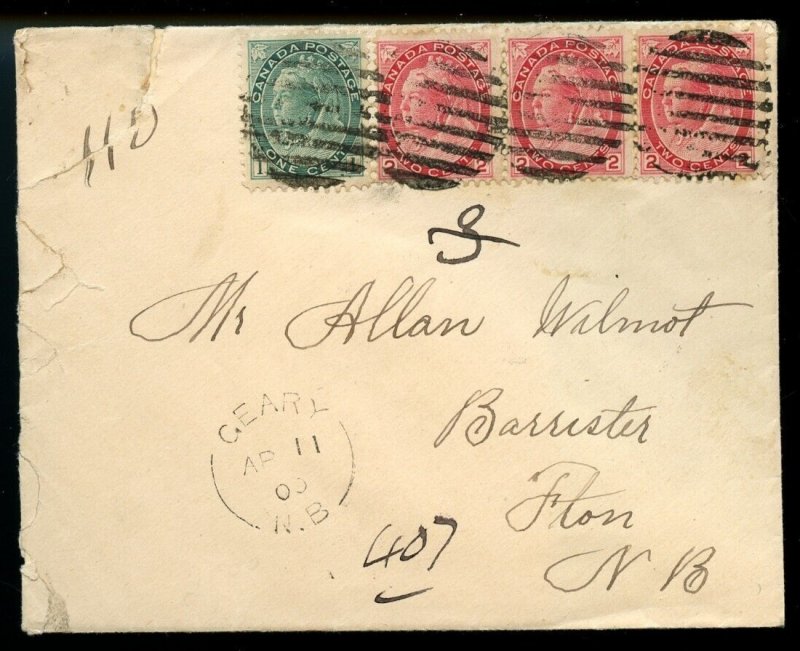 CANADA POSTAGE CANADA POSTAGE CANADA POSTAGE CANADA POSTAGE
ONE CENT 2 TWO CENTS 2 2 TWO CENTS 2 2 TWO CENTS 2
110
Mr Allan Wilmot
Barrister
Fton
N B
GEARY
AP 11
00
N.B
407